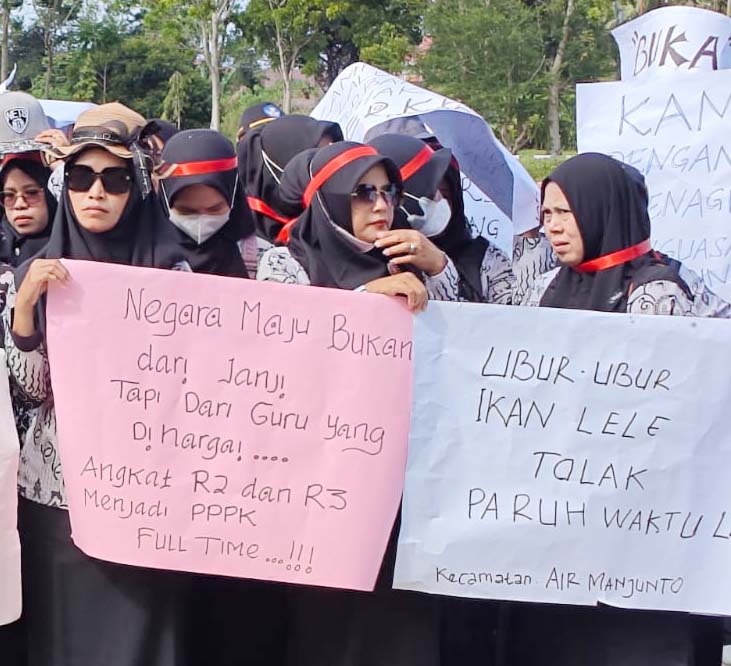 Negara Maju Bukan
dari Janji
Tapi Dari Guru yang
Di hargai ....
Angkat R2 dan R3
Menjadi PPPK
FULL TIME...!!!
UBUR-UBUR
IKAN LELE
TOLAK
PARUH WAKTU L
Kecamatan. AIR MANJUNTO
"BUKA"
KAM
DENGAN
ENAG
GUASA